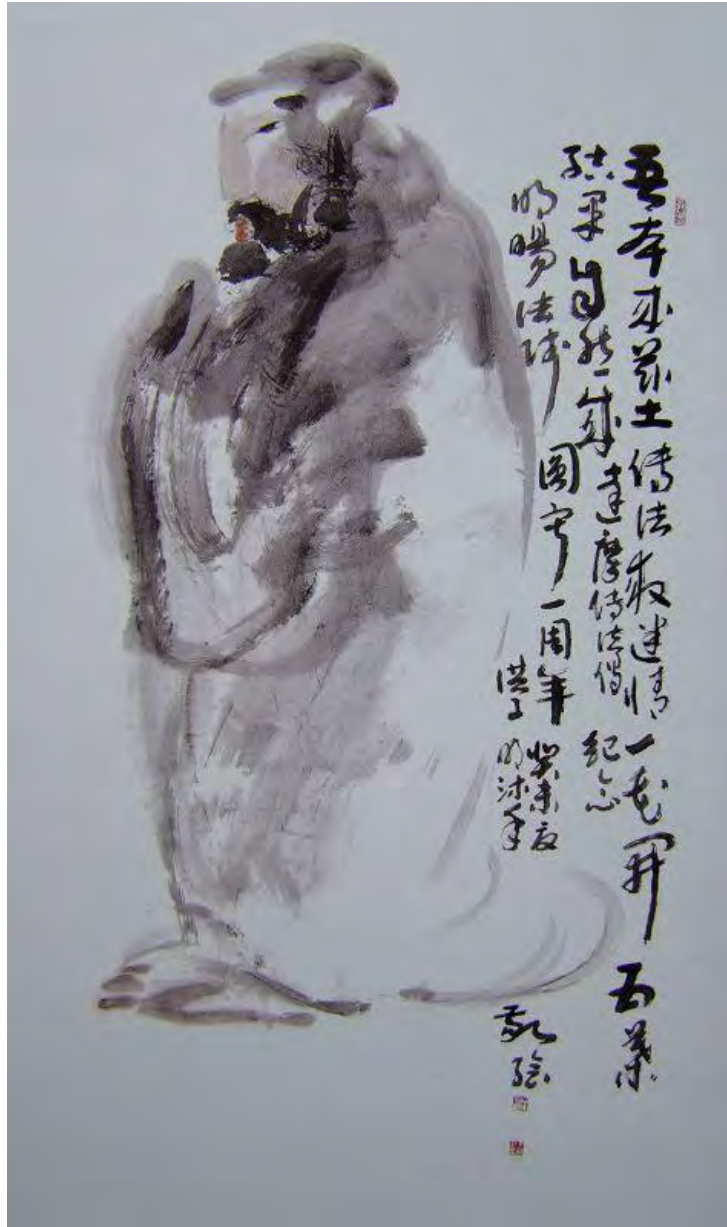 吾本来兹土傳法救迷情一花開五葉
結果自然成達摩傳法偈 紀念
明暘法師 圓寂一周年
癸未夏
洪子明沐手
敬繪